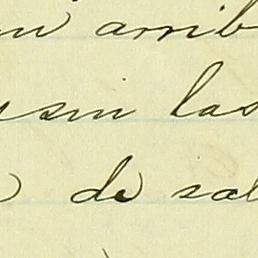 arrib
sin las
de sal